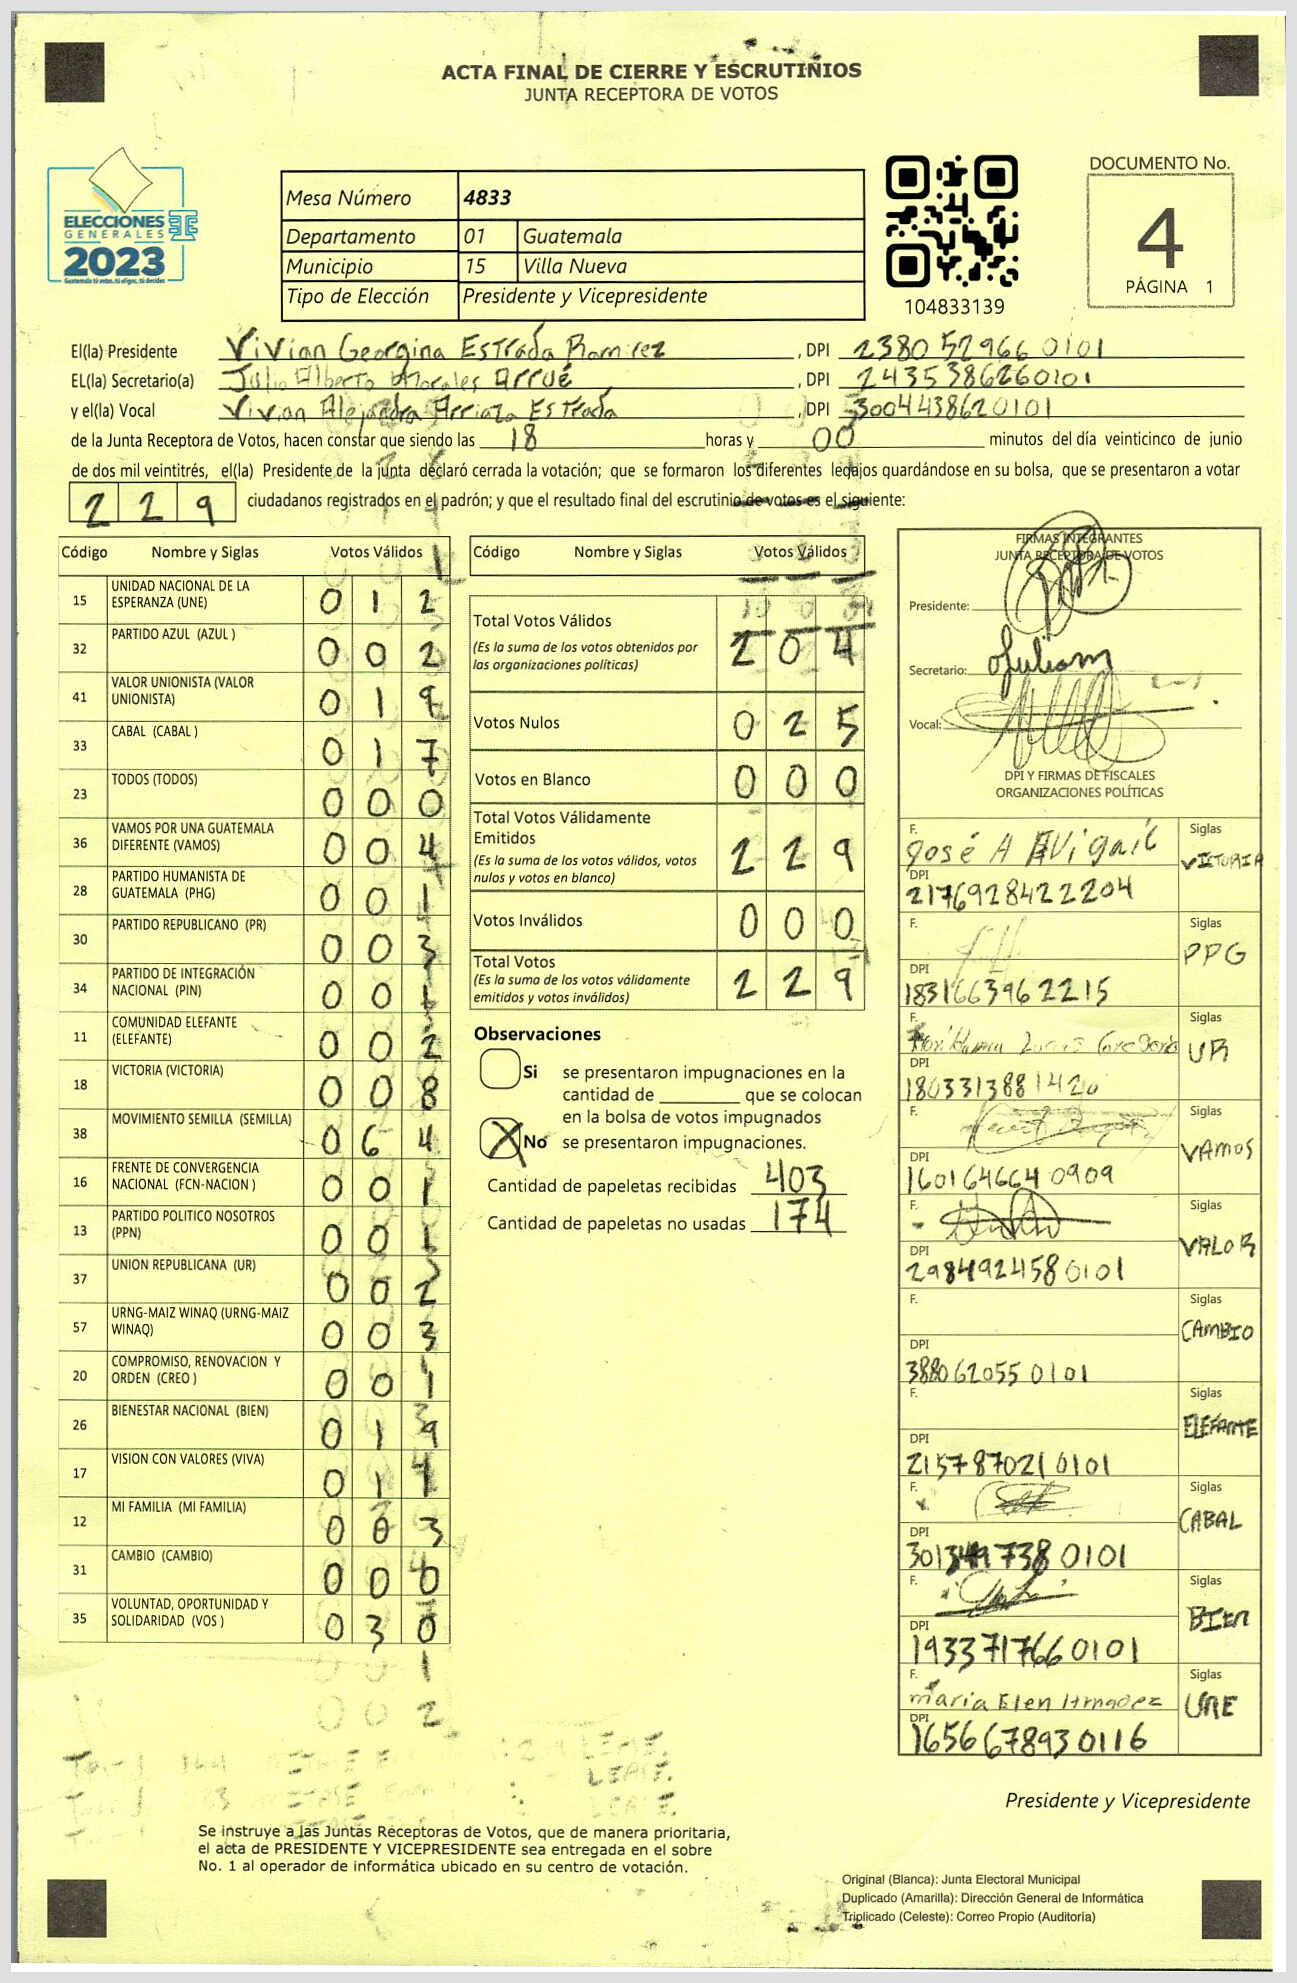 ACTA FINAL DE CIERRE Y ESCRUTINIOS
JUNTA RECEPTORA DE VOTOS
ELECCIONES
GENERALES
2023
Guatemala tú votas, tú eliges, tú decides
Mesa Número 4833
Departamento 01 Guatemala
Municipio 15 Villa Nueva
Tipo de Elección Presidente y Vicepresidente
104833139
DOCUMENTO No.
4
PÁGINA 1
El(la) Presidente Vivian Georgina Estrada Ramirez , DPI 2380529660101
EL(la) Secretario(a) Julio Alberto Morales Arrué , DPI 2435386260101
y el(la) Vocal Vivian Alejandra Arriaza Estrada , DPI 3004438620101
de la Junta Receptora de Votos, hacen constar que siendo las 18 horas y 00 minutos del día veinticinco de junio
de dos mil veintitrés, el(la) Presidente de la junta declaró cerrada la votación; que se formaron los diferentes legajos guardándose en su bolsa, que se presentaron a votar
229 ciudadanos registrados en el padrón; y que el resultado final del escrutinio de votos es el siguiente:
Código Nombre y Siglas Votos Válidos
15 UNIDAD NACIONAL DE LA ESPERANZA (UNE) 0 1 2
32 PARTIDO AZUL (AZUL ) 0 0 2
41 VALOR UNIONISTA (VALOR UNIONISTA) 0 1 9
33 CABAL (CABAL ) 0 1 7
23 TODOS (TODOS) 0 0 0
36 VAMOS POR UNA GUATEMALA DIFERENTE (VAMOS) 0 0 4
28 PARTIDO HUMANISTA DE GUATEMALA (PHG) 0 0 1
30 PARTIDO REPUBLICANO (PR) 0 0 3
34 PARTIDO DE INTEGRACIÓN NACIONAL (PIN) 0 0 1
11 COMUNIDAD ELEFANTE (ELEFANTE) 0 0 2
18 VICTORIA (VICTORIA) 0 0 8
38 MOVIMIENTO SEMILLA (SEMILLA) 0 6 4
16 FRENTE DE CONVERGENCIA NACIONAL (FCN-NACION ) 0 0 1
13 PARTIDO POLITICO NOSOTROS (PPN) 0 0 1
37 UNION REPUBLICANA (UR) 0 0 2
57 URNG-MAIZ WINAQ (URNG-MAIZ WINAQ) 0 0 3
20 COMPROMISO, RENOVACION Y ORDEN (CREO ) 0 0 1
26 BIENESTAR NACIONAL (BIEN) 0 1 9
17 VISION CON VALORES (VIVA) 0 1 1
12 MI FAMILIA (MI FAMILIA) 0 0 3
31 CAMBIO (CAMBIO) 0 0 0
35 VOLUNTAD, OPORTUNIDAD Y SOLIDARIDAD (VOS ) 0 3 0
Código Nombre y Siglas Votos Válidos
Total Votos Válidos 2 0 4
(Es la suma de los votos obtenidos por
las organizaciones políticas)
Votos Nulos 0 2 5
Votos en Blanco 0 0 0
Total Votos Válidamente
Emitidos 2 2 9
(Es la suma de los votos válidos, votos
nulos y votos en blanco)
Votos Inválidos 0 0 0
Total Votos 2 2 9
(Es la suma de los votos válidamente
emitidos y votos inválidos)
Observaciones
Si se presentaron impugnaciones en la
cantidad de ________ que se colocan
en la bolsa de votos impugnados
X No se presentaron impugnaciones.
Cantidad de papeletas recibidas 403
Cantidad de papeletas no usadas 174
FIRMAS INTEGRANTES
JUNTA RECEPTORA DE VOTOS
Presidente:
Secretario:
Vocal:
DPI Y FIRMAS DE FISCALES
ORGANIZACIONES POLÍTICAS
F. José A Siglas VICTORIA
DPI 2176928422204
F. Siglas PPG
DPI 1831663962215
F. Siglas UR
DPI 1803313881420
F. Siglas VAMOS
DPI 1601646640909
F. Siglas VALOR
DPI 2984924580101
F. Siglas CAMBIO
DPI 3880620550101
F. Siglas ELEFANTE
DPI 2157870210101
F. Siglas CABAL
DPI 0101
F. Siglas BIEN
DPI 1933717660101
F. maria Elen Siglas UNE
DPI 1656678930116
Presidente y Vicepresidente
Se instruye a las Juntas Receptoras de Votos, que de manera prioritaria,
el acta de PRESIDENTE Y VICEPRESIDENTE sea entregada en el sobre
No. 1 al operador de informática ubicado en su centro de votación.
Original (Blanca): Junta Electoral Municipal
Duplicado (Amarilla): Dirección General de Informática
Triplicado (Celeste): Correo Propio (Auditoría)